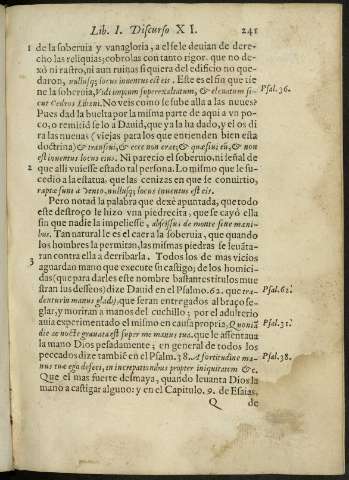 Lib. I. Discurso XI. 241
1 de la soberuia y vanagloria, a el se le deuian de dere-
cho las reliquias; cobrolas con tanto rigor. que no de-
xò ni rastro, ni aun ruinas si quiera del edificio no que-
daron, nullusq; locus inuentus est eis. Este es el fin que tie
ne la soberuia, Vidi impium superexaltatum, & eleuatum si- Psal. 36.
cut Cedros Libani. No veis como se sube alla a las nuues?
Pues dad la buelta por la misma parte de aqui a vn po-
co, o remitid se lo a Dauid, que ya la ha dado, y el os di
ra las nueuas (viejas para los que entienden bien esta
doctrina) & transiui, & ecce non erat; & quæsiui eū, & non
est inuentus locus eius. Ni parecio el soberuio, ni señal de
2 que alli vuiesse estado tal persona. Lo mismo que le su-
cedio a la estatua. que las cenizas en que se conuirtio,
raptæ sunt a vento, nullusq; locus inuentus est eis.
Pero notad la palabra que dexè apuntada, que todo
este destroço le hizo vna piedrecita, que se cayò ella
sin que nadie la impeliesse, abscissus de monte sine mani-
bus. Tan natural le es el caer a la soberuia, que quando
los hombres la permitan, las mismas piedras se leuāta-
ran contra ella a derribarla. Todos los de mas vicios
3 aguardan mano que execute su castigo; de los homici-
das (que para darles este nombre bastantes titulos mue
stran sus desseos) dize Dauid en el Psalmo. 62. que tra- Psal. 62.
dentur in manus gladij, que seran entregados al braço se-
glar, y moriran a manos del cuchillo; por el adulterio
auia experimentado el mismo en causa propria, Quoniā Psal. 31.
die ac nocte grauata est super me manus tua. que le assentaua
la mano Dios pesadamente; en general de todos los
peccados dize tambiē en el Psalm. 38. A fortitudine ma- Psal. 38.
nus tuæ ego defeci, in increpationibus propter iniquitatem &c.
Que el mas fuerte desmaya, quando leuanta Dios la
mano a castigar alguno: y en el Capitulo. 9. de Esaias,
Q de